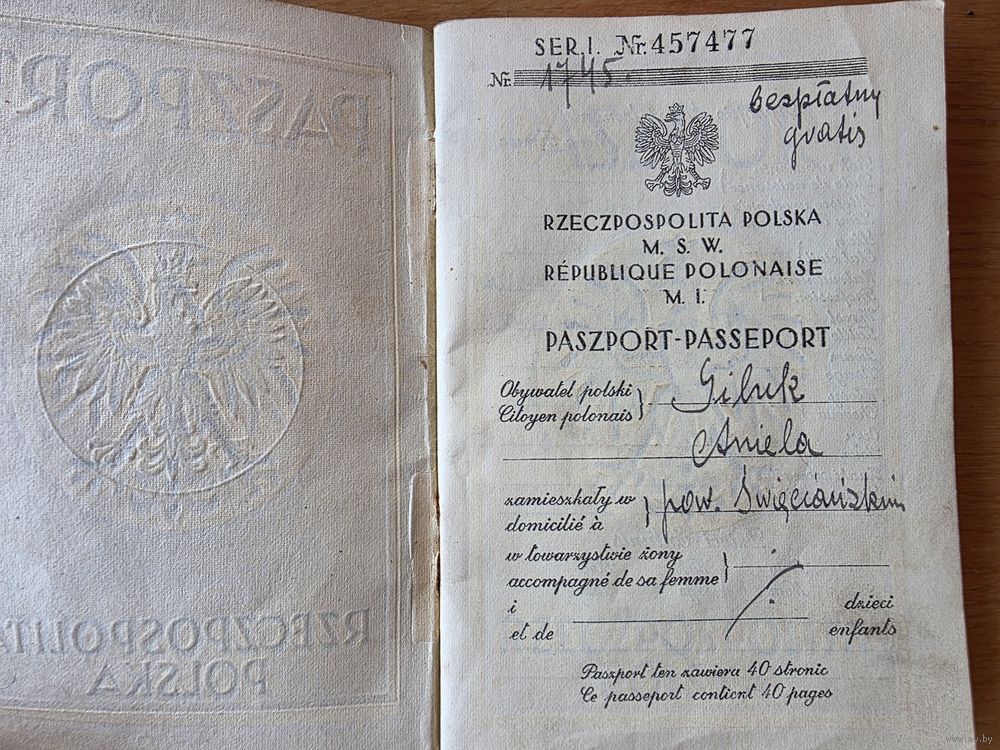 PASZPOR
RZECZPOSPOLITA
POLSKA
SER. I. Nr. 457477
Nr. 1745.
bezpłatny
gratis
RZECZPOSPOLITA POLSKA
M. S. W.
RÉPUBLIQUE POLONAISE
M. I.
PASZPORT-PASSEPORT
Obywatel polski
Citoyen polonais
Giluk
Aniela
zamieszkały w
domicilié à
pow. Święciańskim
w towarzystwie żony
accompagné de sa femme
i dzieci
et de enfants
Paszport ten zawiera 40 stronic
Ce passeport contient 40 pages
www.ay.by